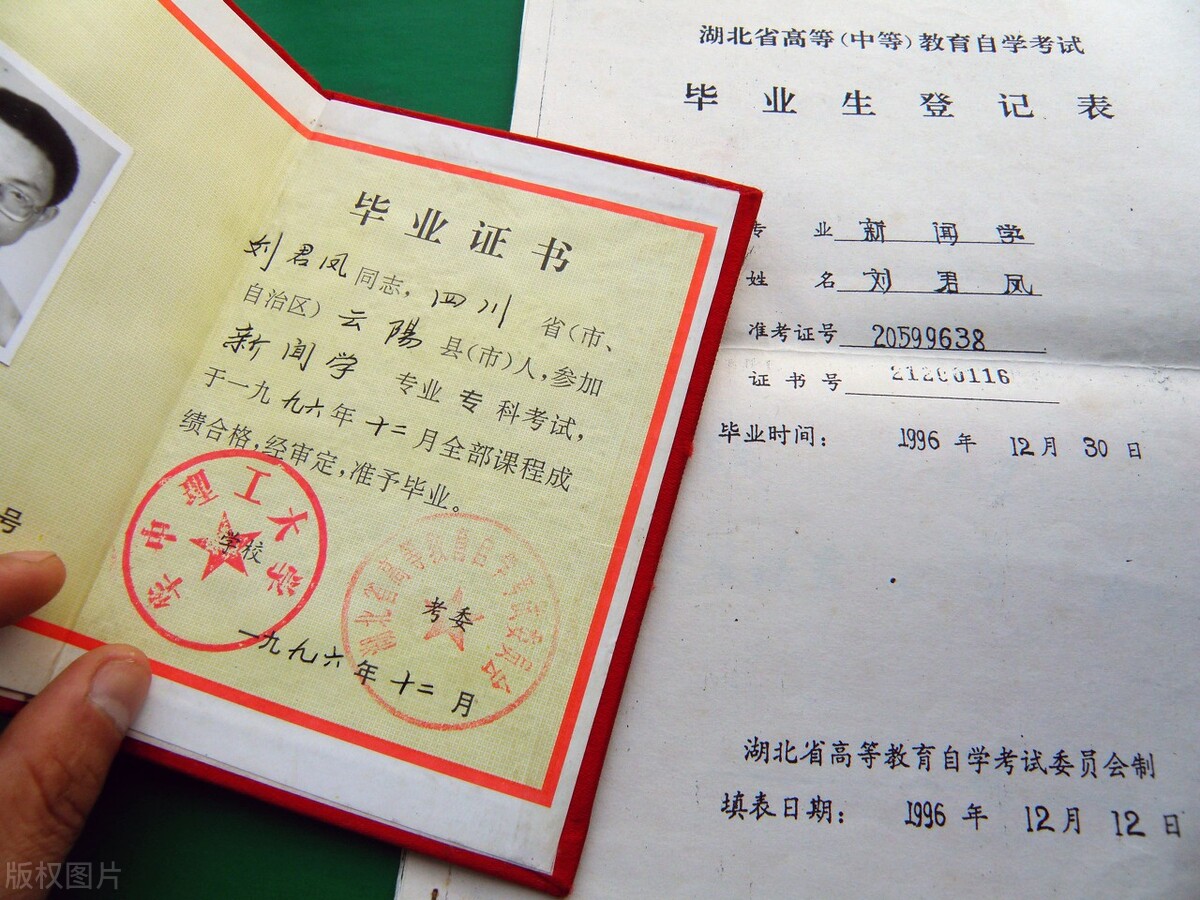 毕业证书
刘君凤同志，四川省(市、
自治区)云陽县(市)人，参加
新闻学专业专科考试，
于一九九六年十二月全部课程成
绩合格，经审定，准予毕业。
华中理工大学
学校
湖北省高等教育自学考试委员会
考委
一九九六年十二月
号
湖北省高等(中等)教育自学考试
毕业生登记表
专业 新闻学
姓名 刘君凤
准考证号 20599638
证书号
毕业时间： 1996年 12月 30日
湖北省高等教育自学考试委员会制
填表日期： 1996年 12月 12日
版权图片